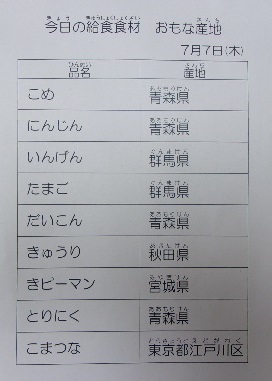 今日の給食食材 おもな産地
7月7日(木)
品名 産地
こめ 青森県
にんじん 青森県
いんげん 群馬県
たまご 群馬県
だいこん 青森県
きゅうり 秋田県
きピーマン 宮城県
とりにく 青森県
こまつな 東京都江戸川区